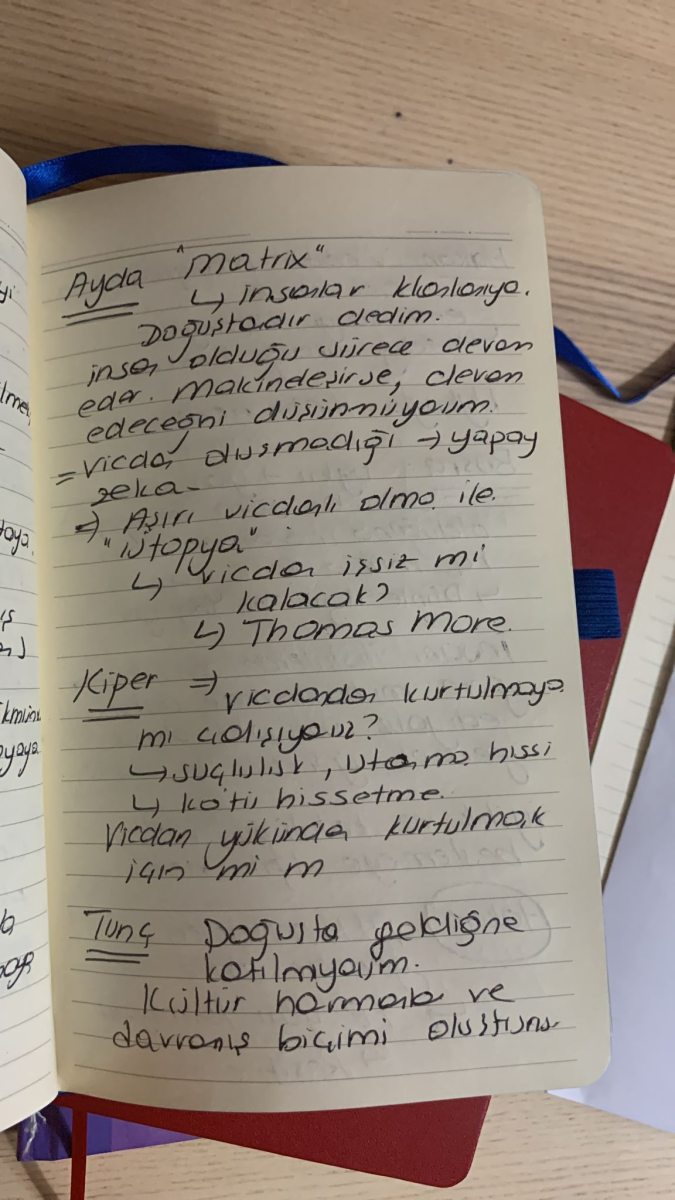 Ayda "matrix"
↳ insanlar klonlanıyo.
Doğuştadır dedim.
insan olduğu sürece devam
eder. Makindeşirse, devam
edeceğni düşünmüyoum.
= vicdan oluşmadığı → yapay
zeka -
⇒ Aşırı vicdanlı olma ile.
"ütopya"
↳ vicdan işsiz mi
kalacak?
↳ Thomas More.
Kiper ⇒ vicdandan kurtulmaya
mı çalışıyouz?
↳ suçluluk, utanma hissi
↳ kötü hissetme.
Vicdan yükünden kurtulmak
için mi m
Tunç Doğuşta geldiğne
katılmıyoum.
Kültür normlar ve
davranış biçimi oluşturur